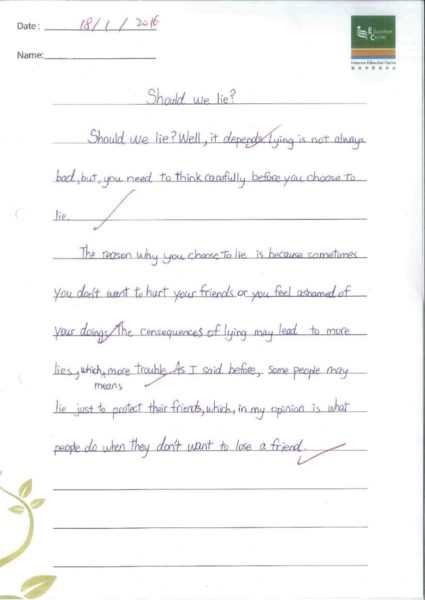 Date : 18/1/2016
Education
Centre
Name:
Should we lie?
Should we lie? Well, it depends. Lying is not always
bad, but, you need to think carefully before you choose to
lie.
The reason why you choose to lie is because sometimes
you don't want to hurt your friends or you feel ashamed of
your doings. The consequences of lying may lead to more
lies, which, more trouble. As I said before, some people may
means
lie just to protect their friends, which, in my opinion is what
people do when they don't want to lose a friend.